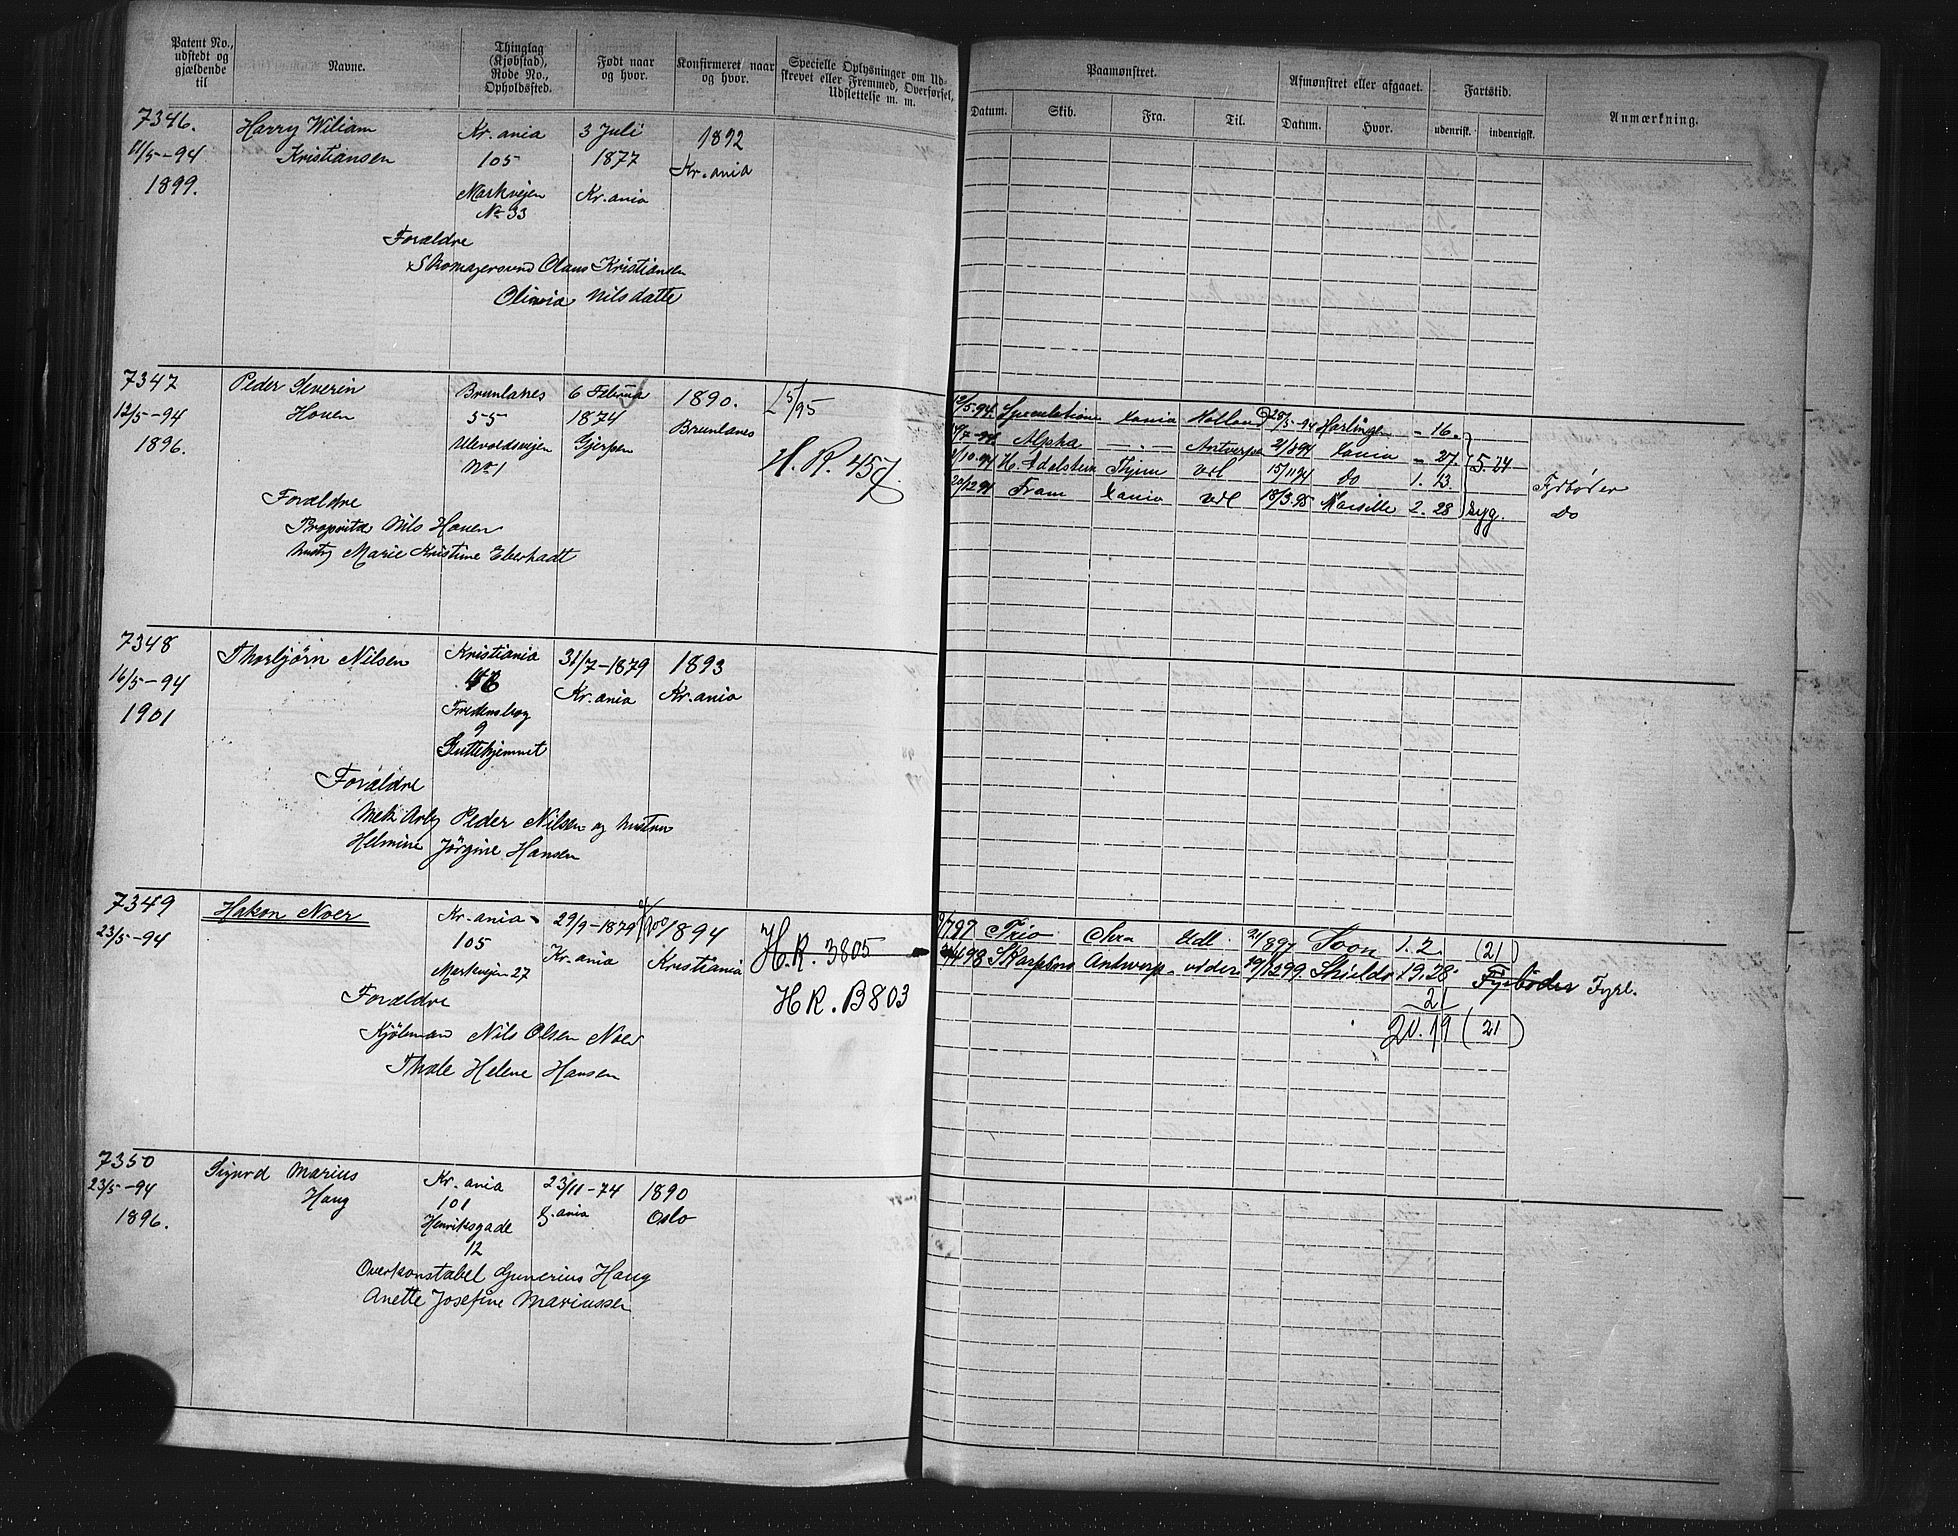 Patent No., udstedt og gjældende til
Navne.
Thinglag (Kjøbstad), Rode No., Opholdssted.
Født naar og hvor.
Konfirmeret naar og hvor.
Specielle Oplysninger om Udskrevet eller Fremmed, Overførsel, Udslettelse m. m.
Paamønstret.
Afmønstret eller afgaaet.
Fartstid.
Anmærkning.
Datum. Skib. Fra. Til. Datum. Hvor. udenrigsk. indenrigsk.
7346. Harry Wiliam Kr.ania 3 Juli 1892
11/5-94 Kristiansen 105 1877 Kr.ania
1899. Markvejen Kr.ania
No 33
Forældre
Skomagersvend Olaus Kristiansen
Olivia Nilsdatte
7347 Peder Severin Brunlanes 6 Februa 1890. 5/95
12/5-94 Houen 55 1874 Brunlanes
1896. Ulevoldsvejen Gjerpen H. R. 457
No 1
Forældre
Proprietæ Nils Houen
hustry Marie Kristine Eberhadt
12/5.94. Speculation Xania Holland 28/5-94 Harlingen - 16.
Alpha — Antverpe 21/894 Xania - 27. 5.24
H. Adelstein Thjem Udl 15/1194 Do 1. 13. Fyrbøder
20/1294 Fram Xania Udl 18/3.95 Marsille 2. 28 syg. Do
7348 Thorbjørn Nilsen Kristiania 31/7-1879 1893
16/5-94 Kr.ania Kr.ania
1901 Fredensborg
9
Guttehjemmet
Forældre
Mek Arb Peder Nilsen og hustru
Helmine Jørgine Hansen
7349 Hakon Noer Kr.ania 29/9-1879 1894 H.R. 3805
23/5-94 105 Kr.ania Kristiania
Markvejen 27 H R. B803
Forældre
Kjølman Nils Olsen Noer
Thale Helene Hansen
9/797 Trio Chra Udl. 21/897 Soon 1.2. (21)
498 Skarpsno Antwerp videre 19/1299 Shields 19.28 Fyrbøder Fyrb.
21
20.19 (21)
7350 Sigurd Marius Kr.ania 23/11-74 1890
23/5-94 Haug 101 X.ania Oslo
1896. Henriksgade
12
Overkonstabel Gunerius Haug
Anette Josefine Mariussen